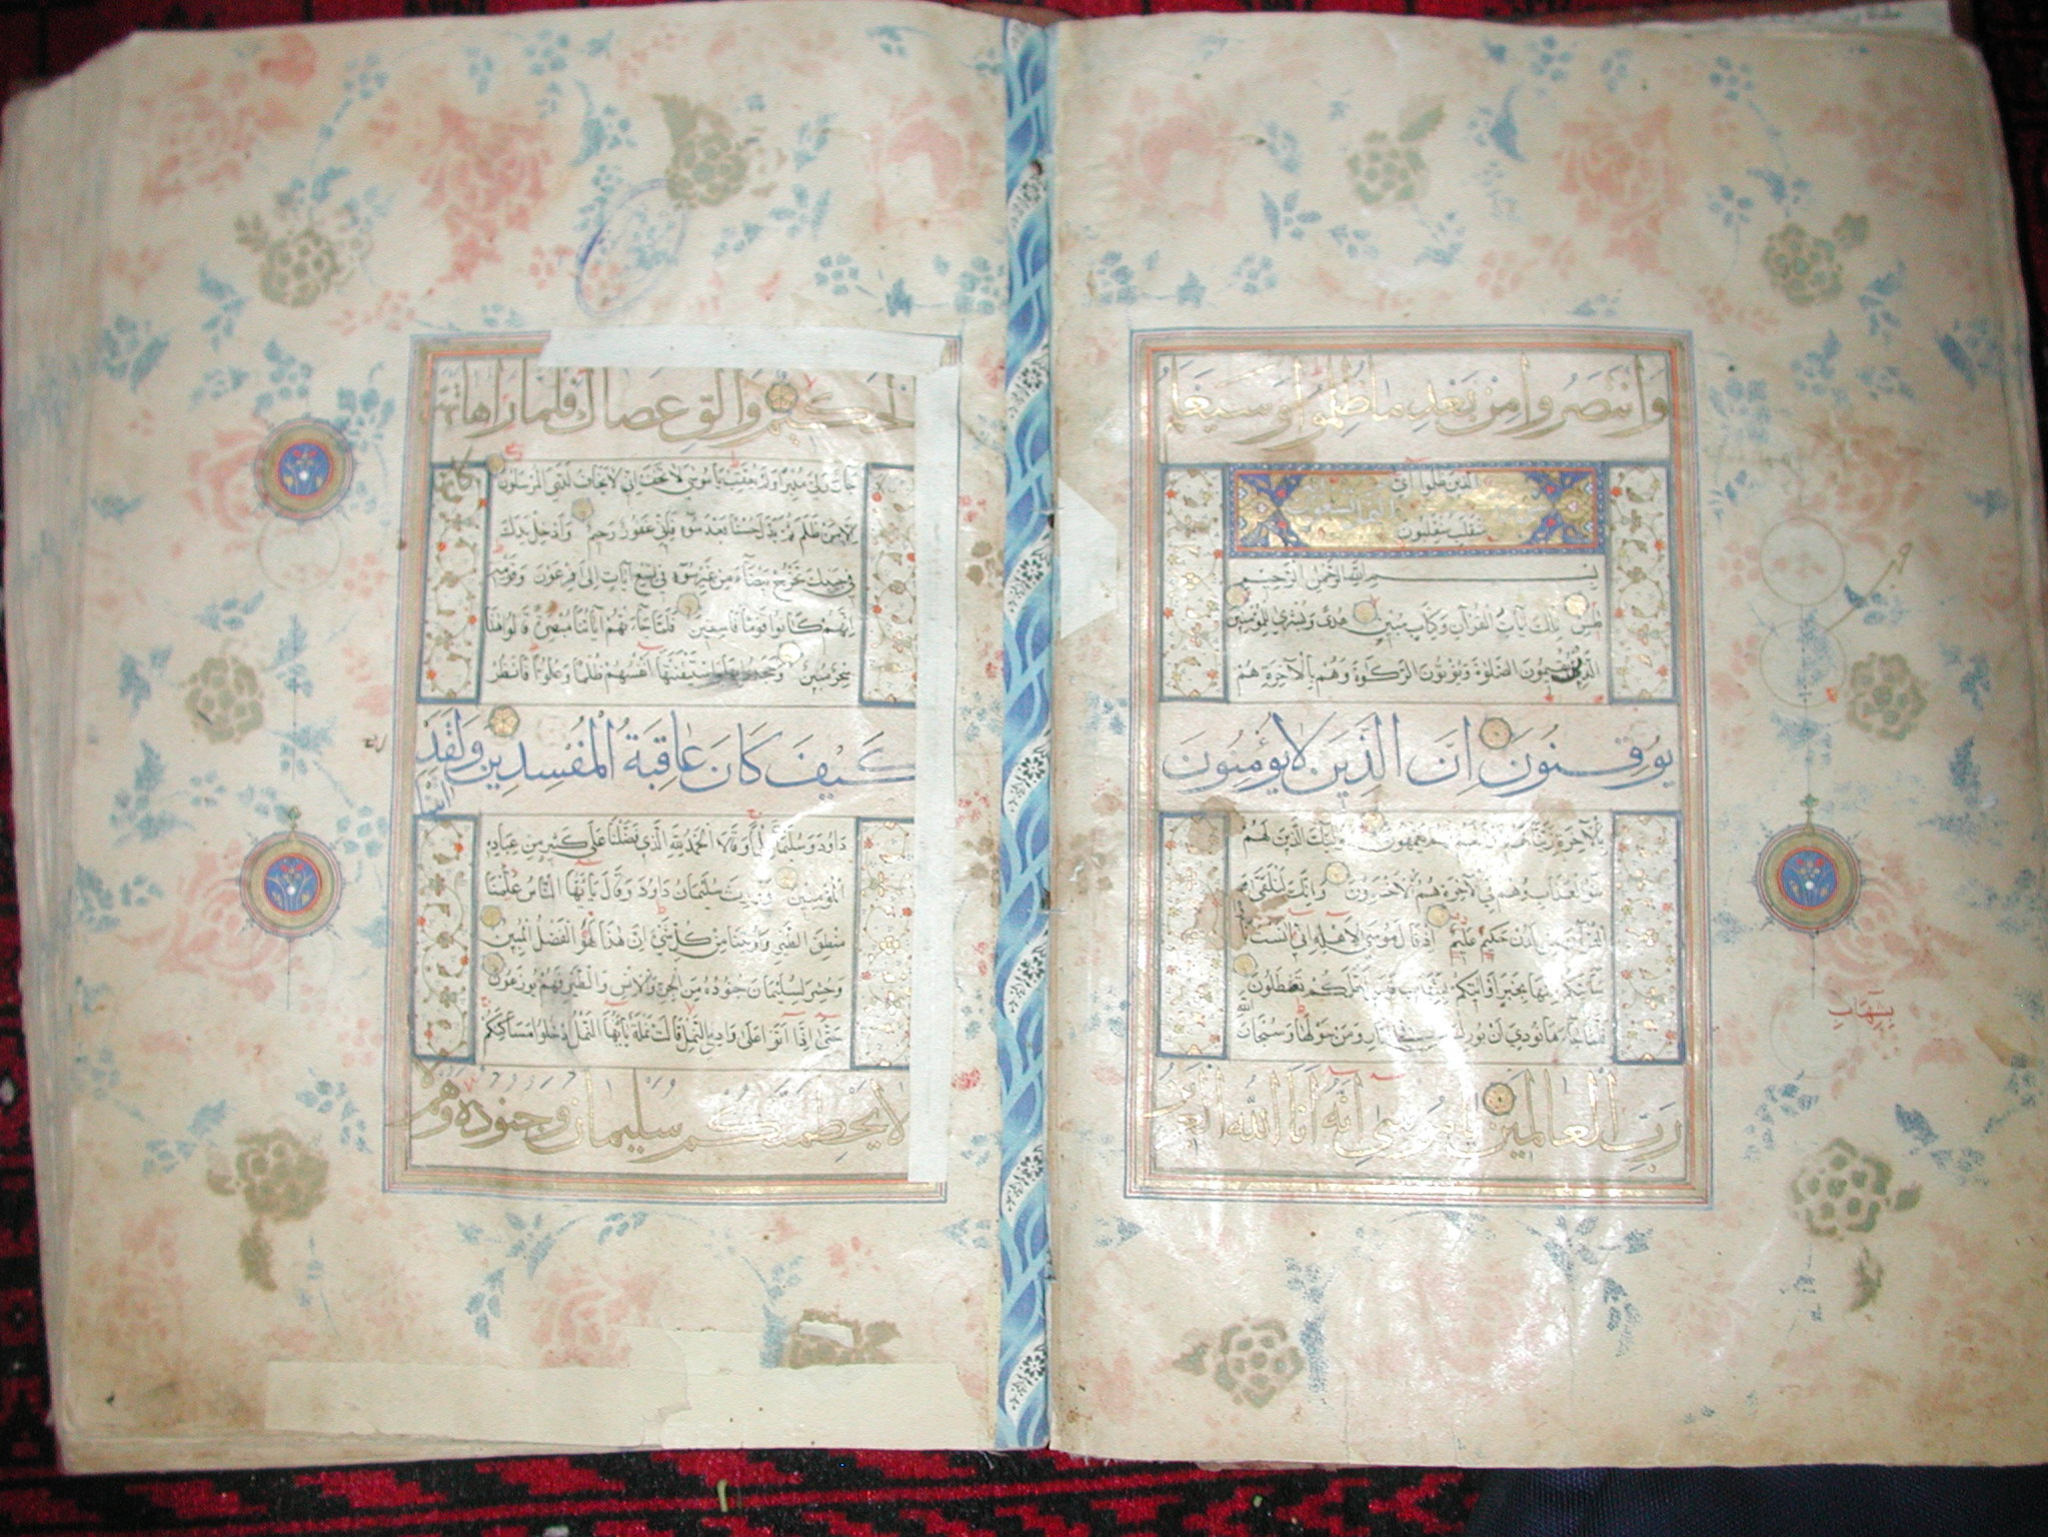 وَانتَصَرُوا مِنْ بَعْدِ مَا ظُلِمُوا وَسَيَعْلَمُ
الَّذِينَ ظَلَمُوا أَيَّ
مُنْقَلَبٍ يَنْقَلِبُونَ
بِسْمِ اللَّهِ الرَّحْمٰنِ الرَّحِيمِ
طس تِلْكَ آيَاتُ الْقُرْآنِ وَكِتَابٍ مُبِينٍ هُدًى وَبُشْرَى لِلْمُؤْمِنِينَ
الَّذِينَ يُقِيمُونَ الصَّلٰوةَ وَيُؤْتُونَ الزَّكَاوةَ وَهُمْ بِالْآخِرَةِ هُمْ
يُوقِنُونَ إِنَّ الَّذِينَ لَا يُؤْمِنُونَ
بِالْآخِرَةِ زَيَّنَّا لَهُمْ أَعْمَالَهُمْ فَهُمْ يَعْمَهُونَ أُولَئِكَ الَّذِينَ لَهُمْ
سُوءُ الْعَذَابِ وَهُمْ فِي الْآخِرَةِ هُمُ الْأَخْسَرُونَ وَإِنَّكَ لَتُلَقَّى
الْقُرْآنَ مِنْ لَدُنْ حَكِيمٍ عَلِيمٍ إِذْ قَالَ مُوسَى لِأَهْلِهِ إِنِّي آنَسْتُ نَارًا
سَآتِيكُمْ مِنْهَا بِخَبَرٍ أَوْ آتِيكُمْ بِشِهَابٍ قَبَسٍ لَعَلَّكُمْ تَصْطَلُونَ
بِشِهَابٍ
فَلَمَّا جَاءَهَا نُودِيَ أَنْ بُورِكَ مَنْ فِي النَّارِ وَمَنْ حَوْلَهَا وَسُبْحَانَ اللَّهِ
رَبِّ الْعَالَمِينَ يَا مُوسَى إِنَّهُ أَنَا اللَّهُ الْعَزِيزُ
الْحَكِيمُ وَأَلْقِ عَصَاكَ فَلَمَّا رَآهَا تَهْتَزُّ كَأَنَّهَا
جَانٌّ وَلَّى مُدْبِرًا وَلَمْ يُعَقِّبْ يَا مُوسَى لَا تَخَفْ إِنِّي لَا يَخَافُ لَدَيَّ الْمُرْسَلُونَ
إِلَّا مَنْ ظَلَمَ ثُمَّ بَدَّلَ حُسْنًا بَعْدَ سُوءٍ فَإِنِّي غَفُورٌ رَحِيمٌ وَأَدْخِلْ يَدَكَ
فِي جَيْبِكَ تَخْرُجْ بَيْضَاءَ مِنْ غَيْرِ سُوءٍ فِي تِسْعِ آيَاتٍ إِلَى فِرْعَوْنَ وَقَوْمِهِ
إِنَّهُمْ كَانُوا قَوْمًا فَاسِقِينَ فَلَمَّا جَاءَتْهُمْ آيَاتُنَا مُبْصِرَةً قَالُوا هَذَا
سِحْرٌ مُبِينٌ وَجَحَدُوا بِهَا وَاسْتَيْقَنَتْهَا أَنْفُسُهُمْ ظُلْمًا وَعُلُوًّا فَانْظُرْ
كَيْفَ كَانَ عَاقِبَةُ الْمُفْسِدِينَ وَلَقَدْ آتَيْنَا
دَاوُدَ وَسُلَيْمَانَ عِلْمًا وَقَالَا الْحَمْدُ لِلَّهِ الَّذِي فَضَّلَنَا عَلَى كَثِيرٍ مِنْ عِبَادِهِ
الْمُؤْمِنِينَ وَوَرِثَ سُلَيْمَانُ دَاوُدَ وَقَالَ يَا أَيُّهَا النَّاسُ عُلِّمْنَا
مَنْطِقَ الطَّيْرِ وَأُوتِينَا مِنْ كُلِّ شَيْءٍ إِنَّ هَذَا لَهُوَ الْفَضْلُ الْمُبِينُ
وَحُشِرَ لِسُلَيْمَانَ جُنُودُهُ مِنَ الْجِنِّ وَالْإِنْسِ وَالطَّيْرِ فَهُمْ يُوزَعُونَ
حَتَّى إِذَا أَتَوْا عَلَى وَادِ النَّمْلِ قَالَتْ نَمْلَةٌ يَا أَيُّهَا النَّمْلُ ادْخُلُوا مَسَاكِنَكُمْ
لَا يَحْطِمَنَّكُمْ سُلَيْمَانُ وَجُنُودُهُ وَهُمْ لَا